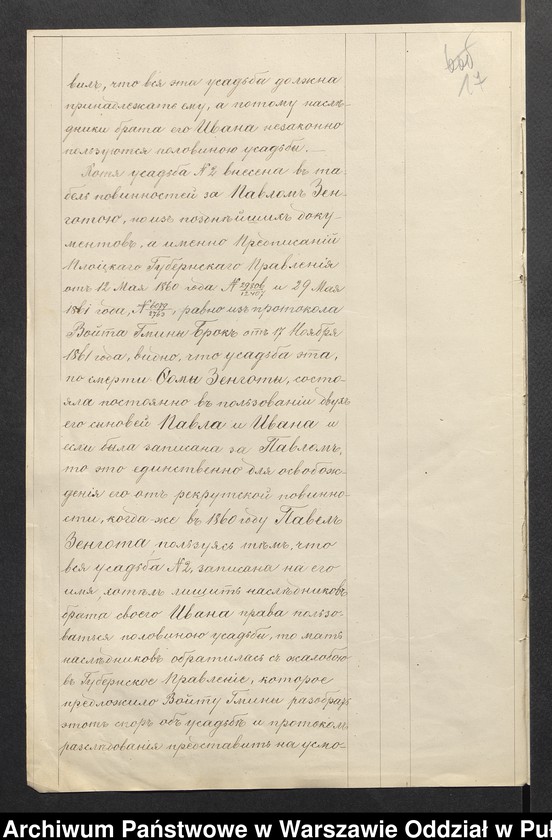 17
вилъ, что вся эта усадьба должна
принадлежать ему, а потому наслѣ-
дники брата его Ивана незаконно
пользуются половиною усадьбы. —
Хотя усадьба № 2 внесена въ та-
бель повинностей за Павломъ Зен-
готою, но изъ позднѣйшихъ доку-
ментовъ, а именно Предписаній
Плоцкаго Губернскаго Правленія
отъ 12 Мая 1860 года № и 29 Мая
1861 года, № , равно изъ протокола
Войта Гмины Брокъ отъ 17 Ноября
1861 года, видно, что усадьба эта,
по смерти Ѳомы Зенготы, состо-
яла постоянно въ пользованіи двухъ
его сыновей Павла и Ивана и
если была записана за Павломъ,
то это единственно для освобож-
денія его отъ рекрутской повинно-
сти, когда-же въ 1860 году Павелъ
Зенгота, пользуясь тѣмъ, что
вся усадьба № 2, записана на его
имя, хотѣлъ лишить наслѣдниковъ
брата своего Ивана права пользо-
ваться половиною усадьбы, то мать
наслѣдниковъ обратилась съ жалобою
въ Губернское Правленіе, которое
предложило Войту Гмины разобрать
этотъ споръ объ усадьбѣ и протоколъ
разслѣдованія представить на усмо-
Archiwum Państwowe w Warszawie Oddział w Puł